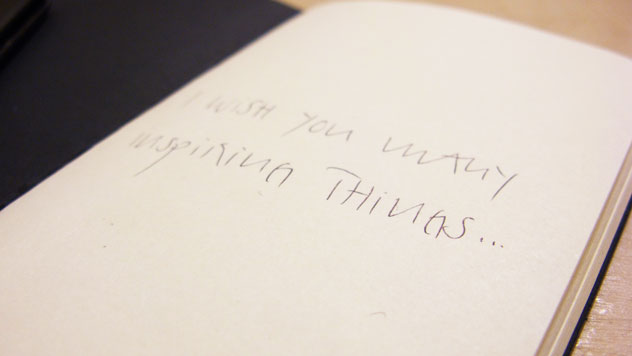 I WISH YOU MANY
INSPIRING THINGS...